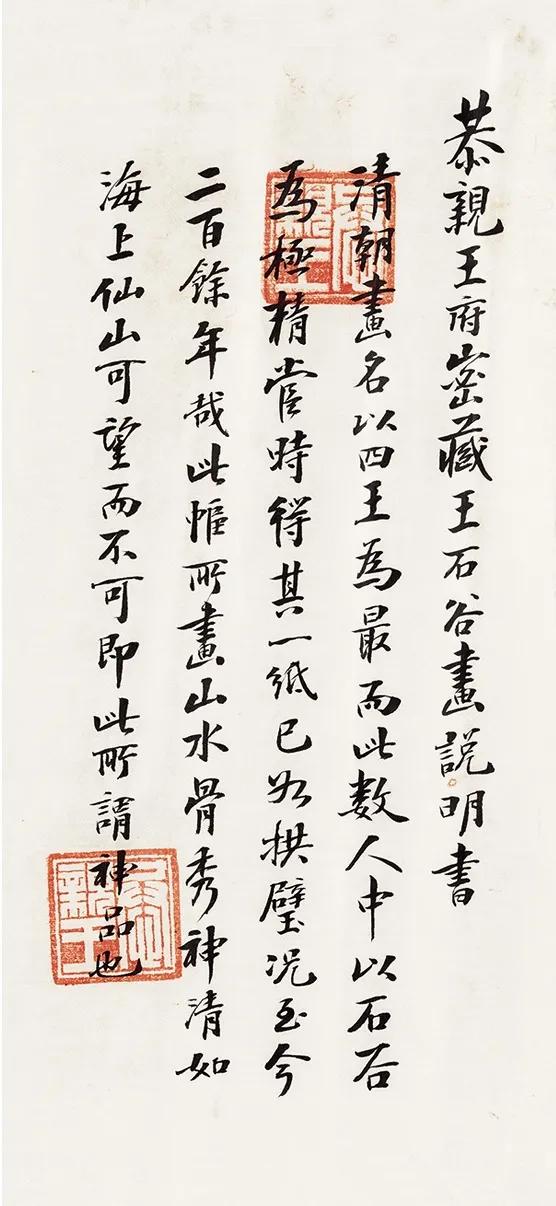 恭親王府密藏王石谷畫説明書
清朝畫名以四王為最而此數人中以石
為極精當時得其一紙已如拱璧況至今
二百餘年哉此幅所畫山水骨秀神清如
海上仙山可望而不可即此所謂神品也